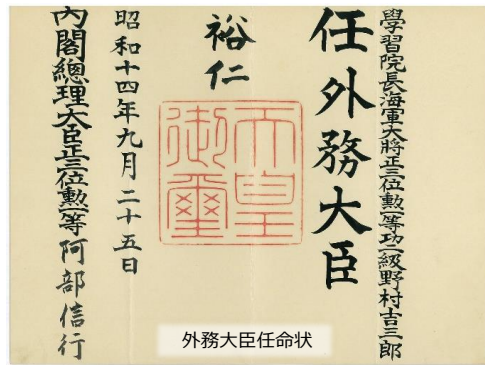 學習院長海軍大將正三位勲一等功二級野村吉三郎
任外務大臣
裕仁
天皇御璽
昭和十四年九月二十五日
內閣總理大臣正三位勲一等阿部信行
外務大臣任命状